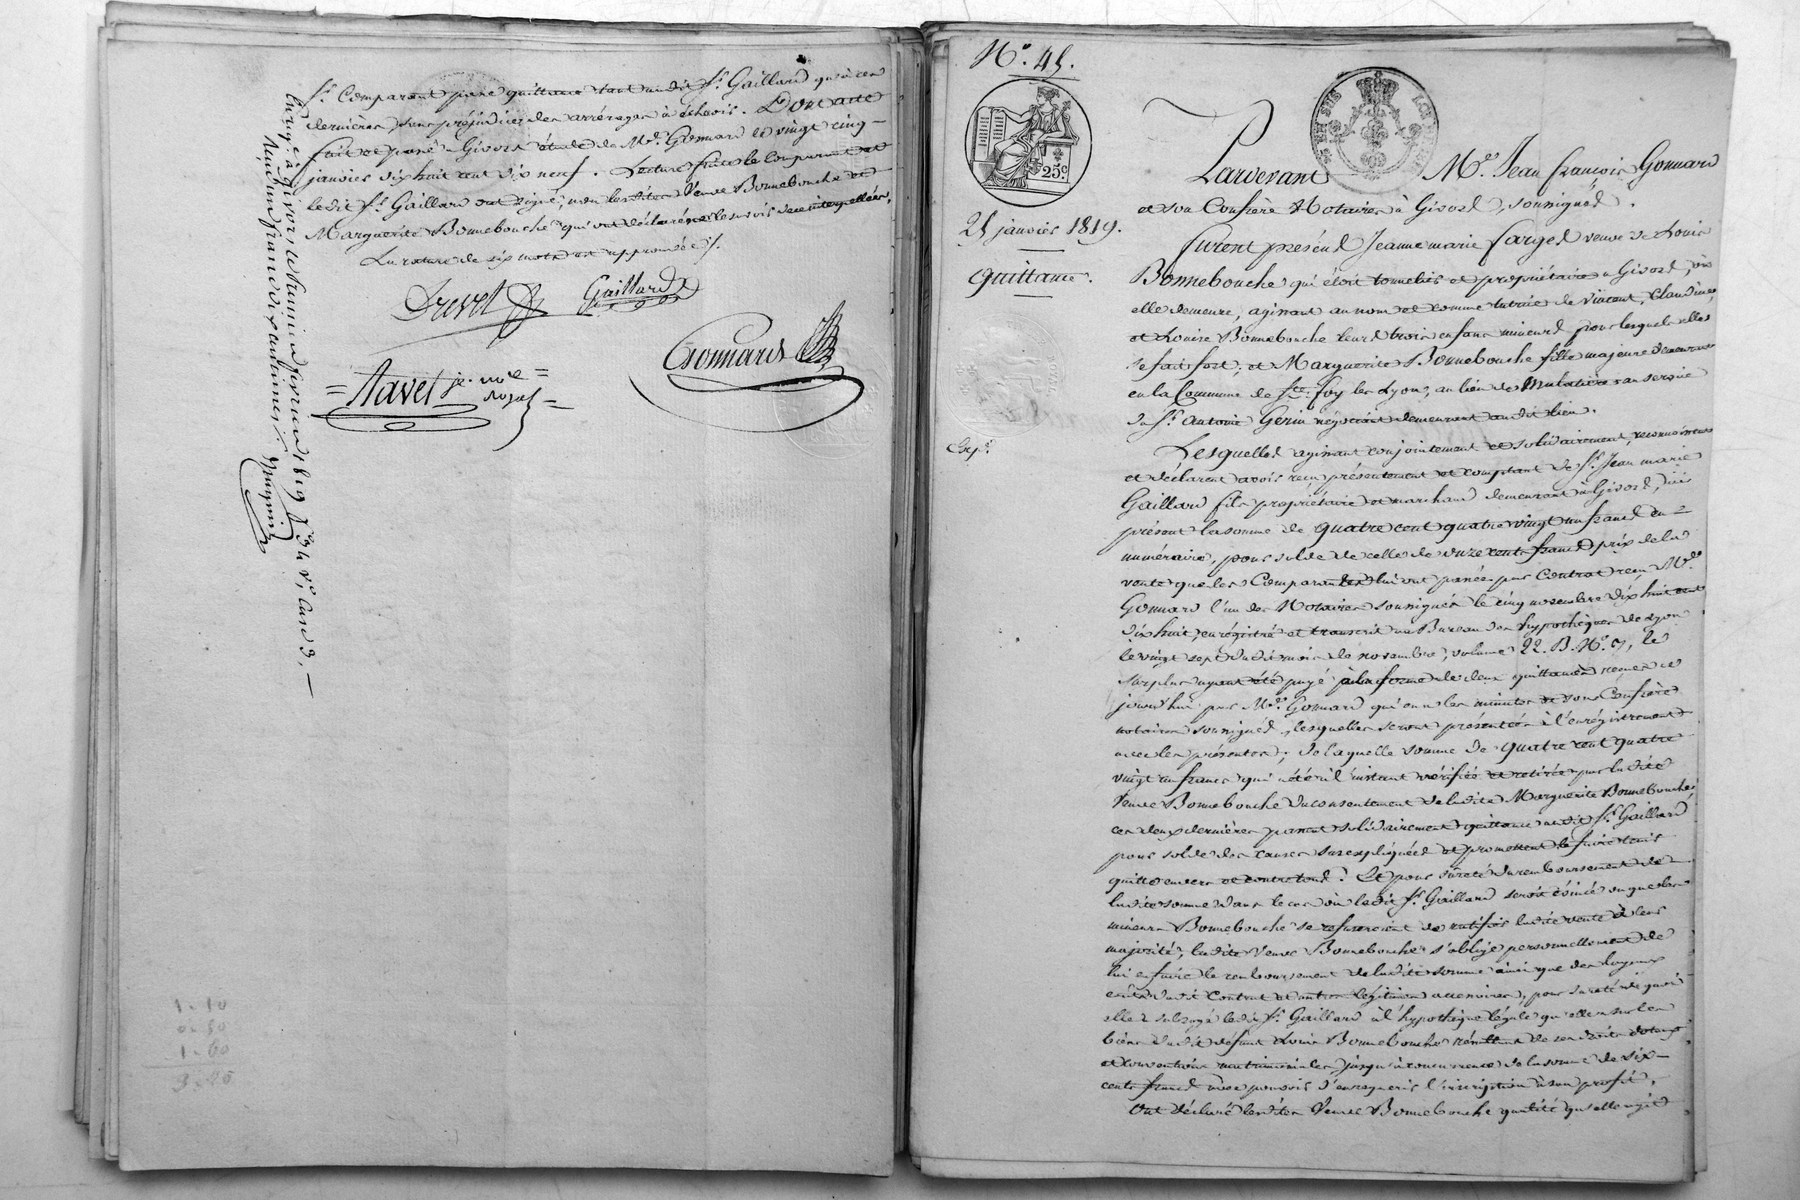 Sr. Comparant passe quittance tant audit Sr. Gaillard qu'à ces
dernières, sans préjudice des arrérages à échoir. Dont acte
fait et passé à Givors étude de Me. Gonnard le vingt cinq
janvier dix huit cent dix neuf. Lecture faite le Comparant et
ledit Sr. Gaillard ont signé, non lesdites Veuve Bonnebouche et
Marguerite Bonnebouche qui ont déclaré ne le savoir de ce interpellées,
La rature de six mots est approuvée.
Drevet
Gaillard
Gonnard
Navet je. nore
royal
Enregé à Givors, le 1819 fo 34 vo, Case 3,
Reçu un franc dix centimes.
1-10
0-
1-60
N° 45.
25c
25 janvier 1819.
Quittance.
Exp.
Pardevant Me. Jean François Gonnard
et son Confrère Notaires à Givors, soussignés.
Furent présents Jeanne marie Farges veuve de Louis
Bonnebouche qui étoit tonnelier et propriétaire à Givors, où
elle demeure, agissant au nom et comme tutrice de Vincent, Claudine,
et Louise Bonnebouche leurs trois enfans mineurs pour lesquels elle
se fait fort; et Marguerite Bonnebouche fille majeure demeurant
en la Commune de Ste. foy les Lyon, au lieu de Mulatière au service
du Sr. Antoine Genin négociant demeurant audit lieu.
Lesquelles agissant conjointement et solidairement, reconnoissent
et déclarent avoir reçu présentement et comptant de Sr. Jean marie
Gaillard fils propriétaire et marchand demeurant à Givors, ici
présent la somme de quatre cent quatre vingt un francs en
numéraire, pour solde de celle de onze cents francs prix de la
vente que les Comparantes lui ont passée par Contrat reçu Me.
Gonnard l'un des Notaires soussignés le cinq novembre dix huit cent
dix huit, enregistré et transcrit au Bureau des hypothèques de Lyon
le vingt sept dudit mois de novembre, volume 22. B. N° 7, le
surplus ayant été payé à la forme de deux quittances reçues ce
jourd'hui par Me. Gonnard qui en a les minutes et son Confrère
notaires soussignés, lesquelles seront présentées à l'enregistrement
avec les présentes; de laquelle somme de quatre cent quatre
vingt un francs qui a été à l'instant vérifiée et retirée par ladite
Veuve Bonnebouche du consentement de ladite Marguerite Bonnebouche,
ces deux dernières passent solidairement quittance audit Sr. Gaillard
pour solde des causes susexpliquées et promettent le faire tenir
quitte envers et contre tous. Et pour sûreté du remboursement de
ladite somme dans le cas où ledit Sr. Gaillard seroit évincé ou que les
mineurs Bonnebouche se refuseroient de ratifier ladite vente à leur
majorité, ladite Veuve Bonnebouche s'oblige personnellement de
lui en faire le remboursement de ladite somme ainsi que des loyaux
coûts dudit Contrat et autres légitimes accessoires, pour sûreté de quoi
elle subrogé ledit Sr. Gaillard à l'hypothèque légale qu'elle a sur les
biens dudit défunt Louis Bonnebouche résultant de ses droits dotaux
et conventions matrimoniales, jusqu'à concurrence de la somme de six
cents francs avec pouvoir d'en requérir l'inscription à son profit.
Ont déclaré lesdites Veuve Bonnebouche qualité qu'elle agit